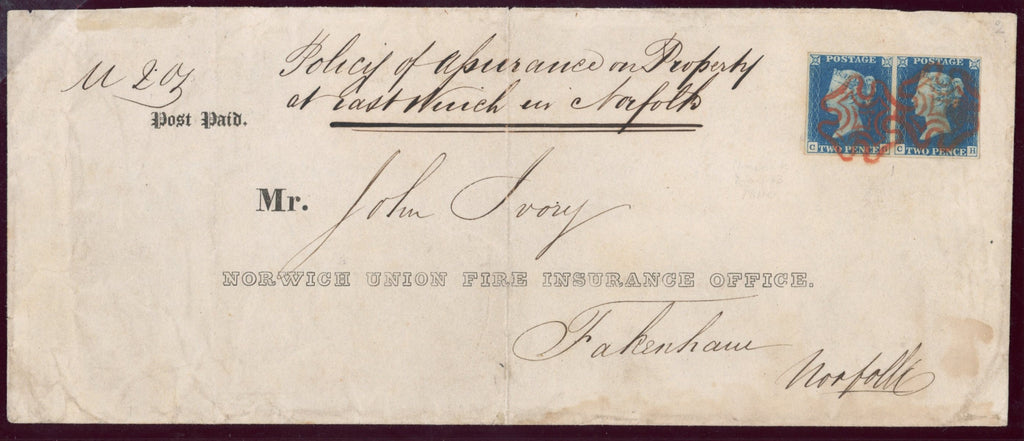 Policy of Assurance on Property
at East Winch in Norfolk
Post Paid.
Mr. John Ivory
NORWICH UNION FIRE INSURANCE OFFICE.
Fakenham
Norfolk
POSTAGE POSTAGE
C G C H
TWO PENCE TWO PENCE
2